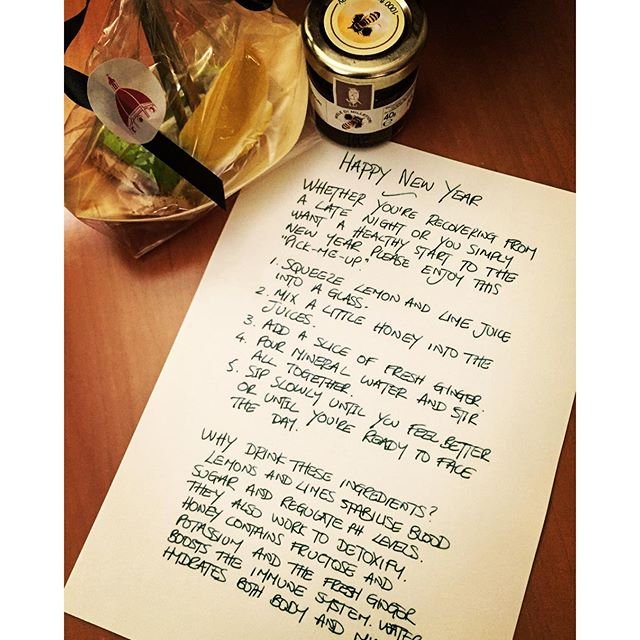 40g
HAPPY NEW YEAR
WHETHER YOU'RE RECOVERING FROM
A LATE NIGHT OR YOU SIMPLY
WANT A HEALTHY START TO THE
NEW YEAR PLEASE ENJOY THIS
"PICK-ME-UP."
1. SQUEEZE LEMON AND LIME JUICE
INTO A GLASS.
2. MIX A LITTLE HONEY INTO THE
JUICES.
3. ADD A SLICE OF FRESH GINGER.
4. POUR MINERAL WATER AND STIR
ALL TOGETHER.
5. SIP SLOWLY UNTIL YOU FEEL BETTER
OR UNTIL YOU'RE READY TO FACE
THE DAY.
WHY DRINK THESE INGREDIENTS?
LEMONS AND LIMES STABILISE BLOOD
SUGAR AND REGULATE PH LEVELS.
THEY ALSO WORK TO DETOXIFY.
HONEY CONTAINS FRUCTOSE AND
POTASSIUM AND THE FRESH GINGER
BOOSTS THE IMMUNE SYSTEM. WATER
HYDRATES BOTH BODY AND